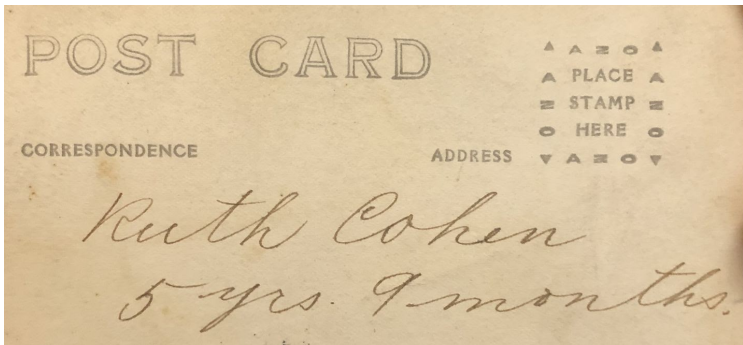 POST CARD
▲ AZO ▲
A PLACE A
Z STAMP Z
O HERE O
▼ AZO ▼
CORRESPONDENCE
ADDRESS
Ruth Cohen
5 yrs. 9 months.